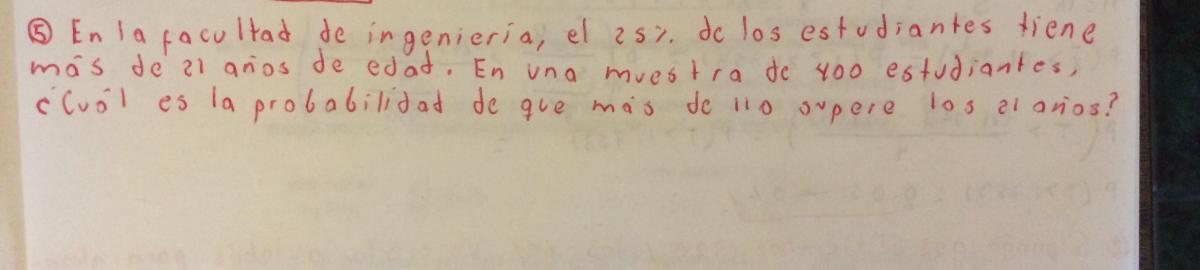 ⑤ En la facultad de ingeniería, el 25%. de los estudiantes tiene
más de 21 años de edad. En una muestra de 400 estudiantes,
¿Cuál es la probabilidad de que más de 110 supere los 21 años?